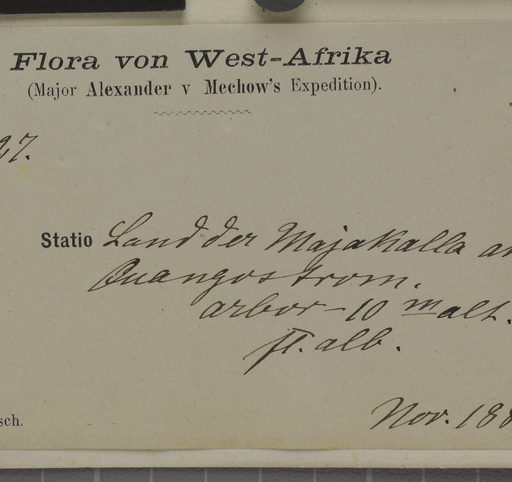 Flora von West-Afrika
(Major Alexander v Mechow's Expedition).
27.
Statio Land der Majakalla an
Quangostrom.
arbor - 10 m alt.
fl. alb.
sch.
Nov. 188